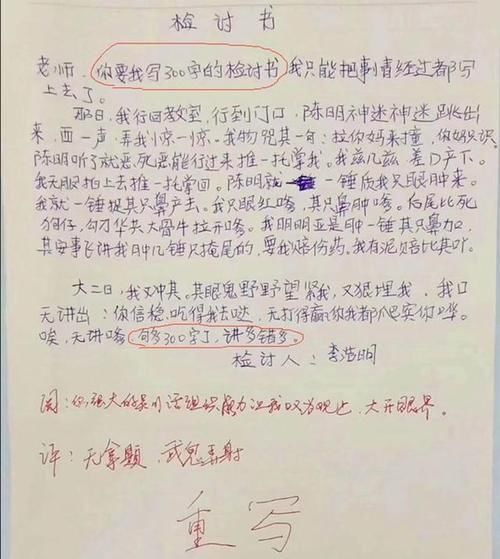 检讨书
老师，你要我写300字的检讨书，我只能把事情经过都写
上去了。
那日，我行回教室，行到门口，陈明神迷神迷跳出
来，西一声，弄我小惊一惊。我物咒其一句：拉你妈来撞，你妈识
陈明听了就恶死恶能行过来推一托掌我。我兹几兹差D产下。
我无服拍上去推一托掌回。陈明就一锤质我只眼肿来。
我就一锤捉其只鼻产去。我只眼红嗲，其只鼻肿嗲。后尾比死
狗仔，勾刁华共大骨牛拉开嗲。我明明亚是用一锤其只鼻加，
其安事飞讲我用几锤只掩尾的，要我赔份药。我有泥赔比其吖。
大二日，我又冲其，其眼鬼野野望紧我，又狠埋我，我口
无讲出：你信稳吃得我去哒，无打得赢你我都爬实你哗。
唉，无讲嗲，句多300字了，讲多错多。
检讨人：李浩明
阅：你强大的白话组织能力让我叹为观止，大开眼界。
评：无拿题，武鬼弄射
重写